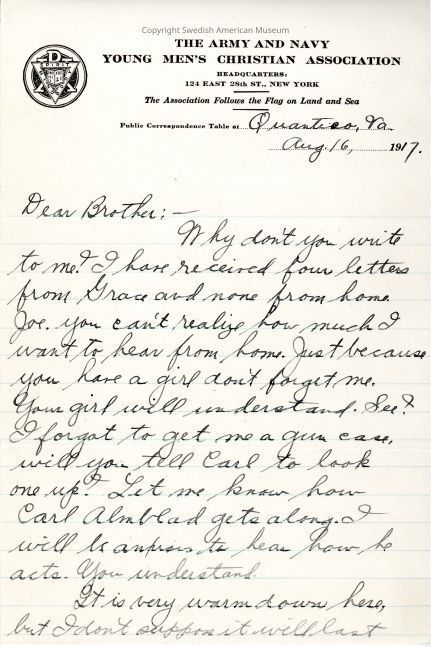 Copyright Swedish American Museum
THE ARMY AND NAVY
YOUNG MEN'S CHRISTIAN ASSOCIATION
HEADQUARTERS:
124 EAST 28th ST., NEW YORK
The Association Follows the Flag on Land and Sea
Public Correspondence Table at Quantico, Va.
Aug. 16, 1917.
Dear Brother:—
Why don't you write
to me? I have received four letters
from Grace and none from home.
Joe. you can't realize how much I
want to hear from home. Just because
you have a girl don't forget me.
Your girl will understand. See?
I forgot to get me a gun case,
will you tell Carl to look
one up? Let me know how
Carl Almblad gets along. I
will be anxious to hear how he
acts. You understand.
It is very warm down here,
but I don't suppose it will last